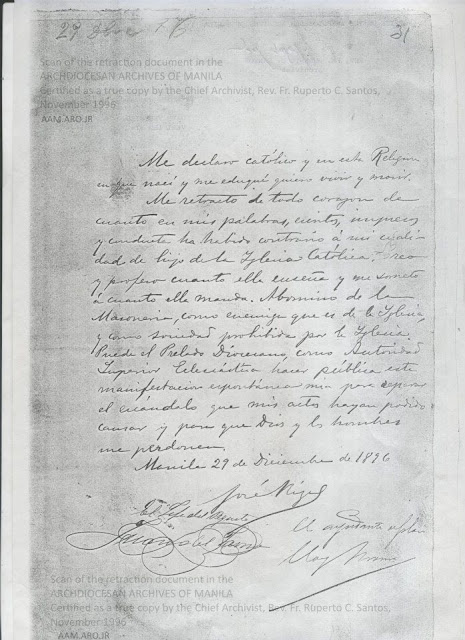 29 Dbre
31
Scan of the retraction document in the
ARCHDIOCESAN ARCHIVES OF MANILA
Certified as a true copy by the Chief Archivist, Rev. Fr. Ruperto C. Santos,
November 1996
AAM.ARO.JR
Me declaro católico y en esta Religion
en que naci y me eduqué quiero vivir y morir.
Me retracto de todo corazon de
cuanto en mis palabras, escritos, impresos
y conducta ha habido contrario á mi cuali-
dad de hijo de la Yglesia Católica. Creo
y profeso cuanto ella enseña y me someto
a cuanto ella manda. Abomino de la
Masoneria, como enemiga que es de la Yglesia,
y como sociedad prohibida por la Yglesia.
Puede el Prelado Diocesano, como Autoridad
Superior Eclesiástica hacer pública esta
manifestacion espontánea mia para reparar
el escándalo que mis actos hayan podido
causar y para que Dios y los hombres
me perdonen
Manila 29 de Diciembre de 1896
José Rizal
El Jefe del Piquete
Juan del Fresno
El ayudante de Plaza
Eloy Moure
Scan of the retraction document in the
ARCHDIOCESAN ARCHIVES OF MANILA
Certified as a true copy by the Chief Archivist, Rev. Fr. Ruperto C. Santos,
November 1996
AAM.ARO.JR